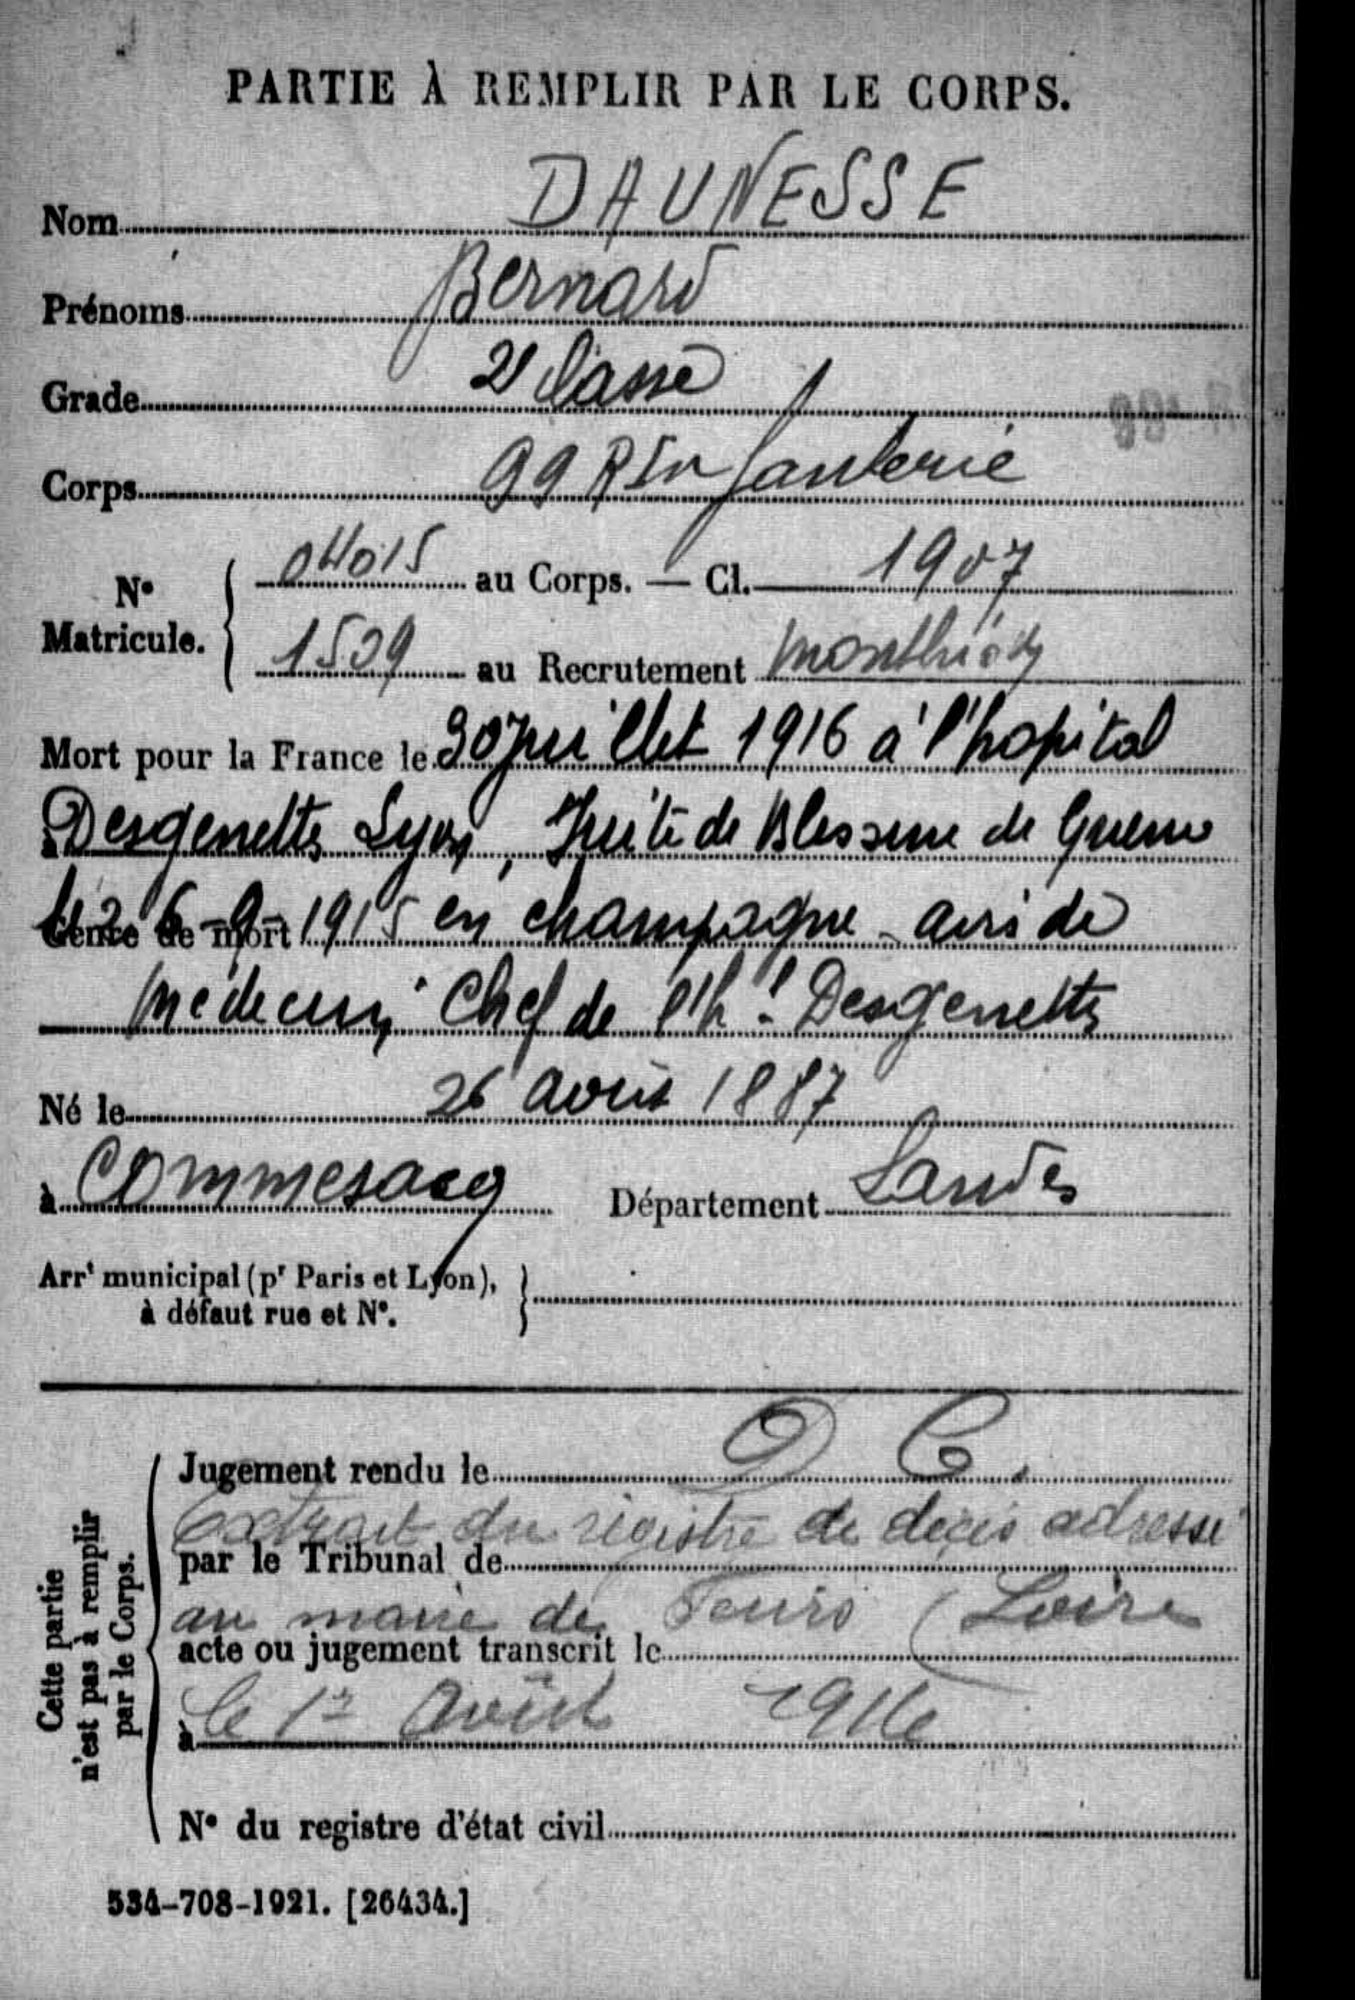 PARTIE À REMPLIR PAR LE CORPS.
Nom DAUNESSE
Prénoms Bernard
Grade 2e Classe
Corps 99 R Infanterie
No Matricule. 04015 au Corps. — Cl. 1907
1509 au Recrutement Montbrison
Mort pour la France le 30 juillet 1916 à l'hopital
à Desgenettes Lyon, Suite de Blessure de Guerre
Genre de mort le 26-9-1915 en champagne - avis de
Médecin Chef de l'h.l Desgenettes
Né le 26 août 1887
à Commesacq Département Landes
Arrt municipal (pr Paris et Lyon),
à défaut rue et No.
Cette partie
n'est pas à remplir
par le Corps.
Jugement rendu le D C.
Extrait du registre de décès adressé
par le Tribunal de
au maire de (Loire
acte ou jugement transcrit le
à le 1er Août 1916
No du registre d'état civil
534-708-1921. [26434.]